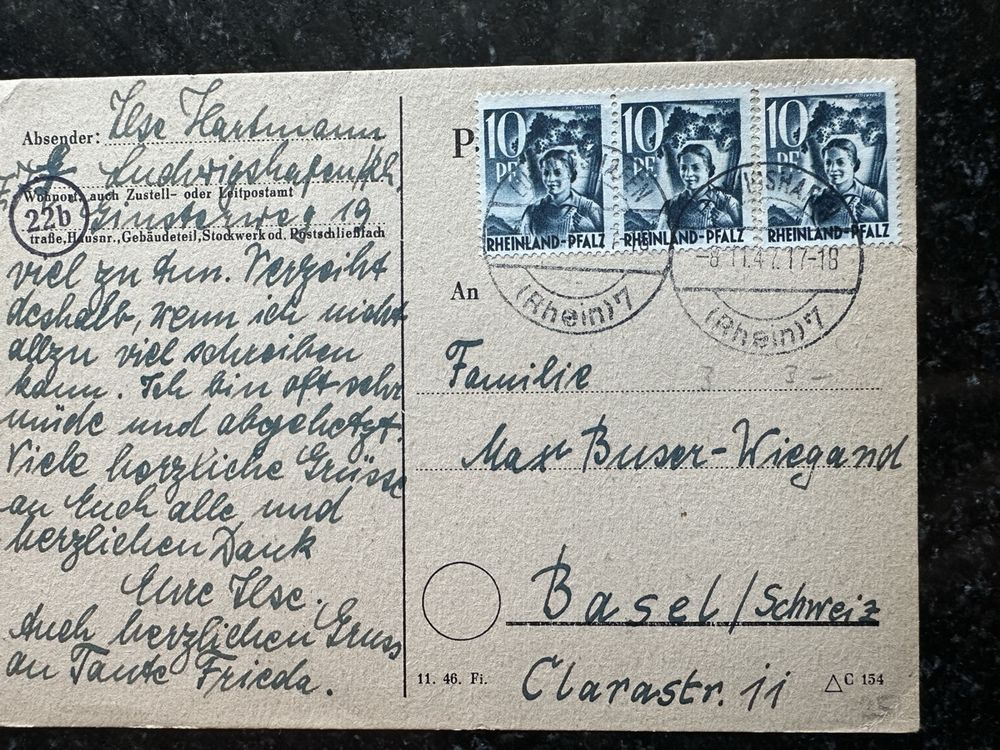 Absender: Ilse Hartmann
Ludwigshafen/Rh.
Wohnort, auch Zustell- oder Leitpostamt
22b
Ginsterweg 19
traße, Hausnr., Gebäudeteil, Stockwerk od. Postschließfach
viel zu tun. Verzeiht
deshalb, wenn ich nicht
allzu viel schreiben
kann. Ich bin oft sehr
müde und abgehetzt.
Viele herzliche Grüsse
an Euch alle und
herzlichen Dank
Eure Ilse.
Auch herzlichen Gruss
an Tante Frieda.
P
10 PF. RHEINLAND-PFALZ
10 PF. RHEINLAND-PFALZ
10 PF. RHEINLAND-PFALZ
(Rhein) 7
-8.11.47.17-18
(Rhein) 7
An
Familie
Max Buser-Wiegand
Basel/Schweiz
Clarastr. 11
11. 46. Fi.
C 154